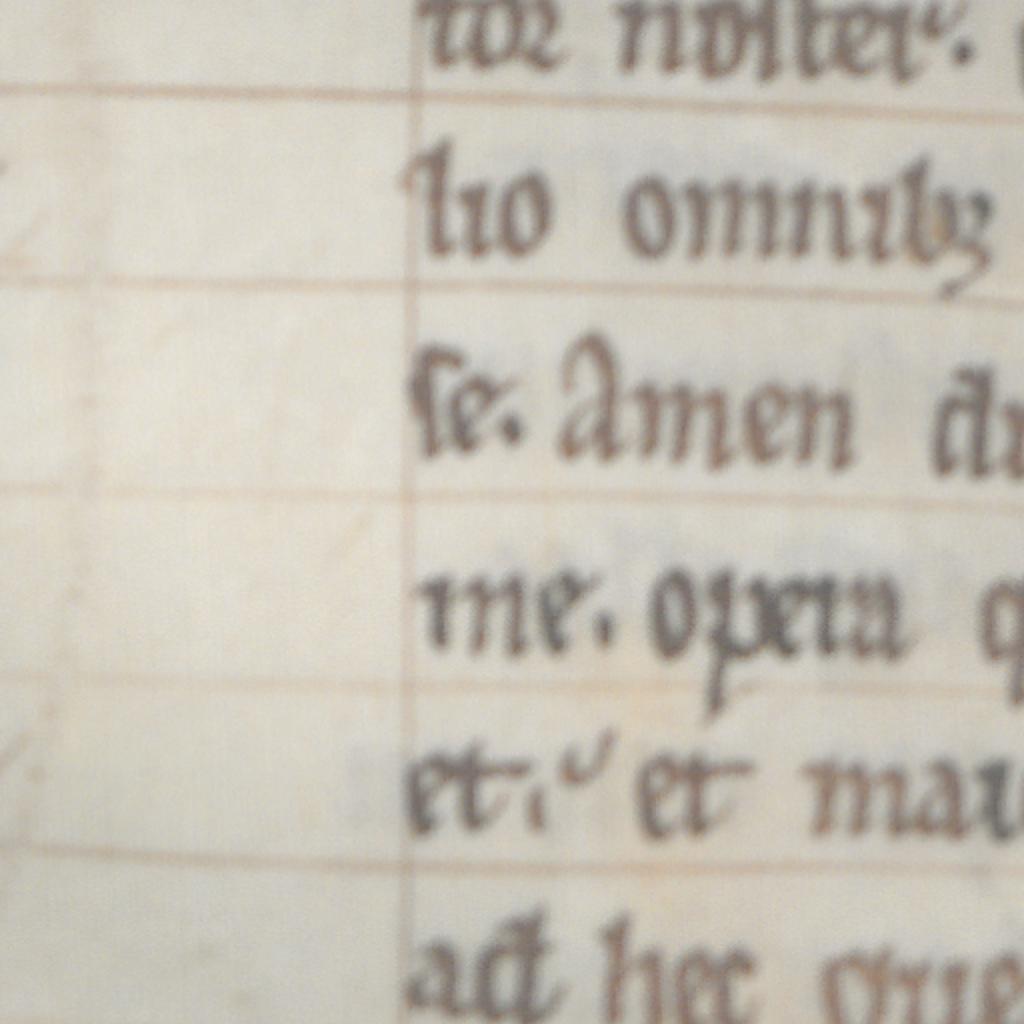 tor noster.
lio omnibꝫ
se. Amen
me. opera
et. et
ad hec que